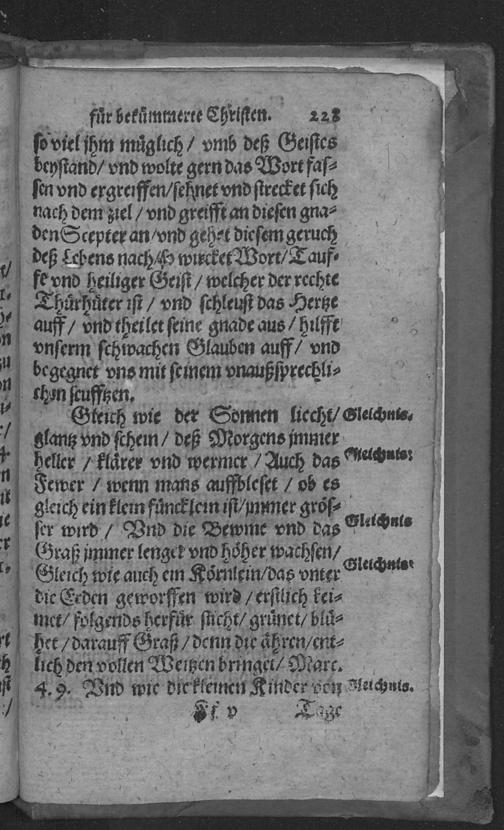 für bekümmerte Christen. 228
so viel jhm müglich / vmb deß Geistes
beystand / vnd wolte gern das Wort fas-
sen vnd ergreiffen / sehnet vnd strecket sich
nach dem ziel / vnd greifft an diesen gna-
den Scepter an / vnd gehet diesem geruch
deß Lebens nach / So wircket Wort / Tauf-
fe vnd heiliger Geist / welcher der rechte
Thürhüter ist / vnd schleust das Hertze
auff / vnd theilet seine gnade aus / hilfft
vnserm schwachen Glauben auff / vnd
begegnet vns mit seinem vnaußsprechli-
chen seufftzen.
Gleich wie der Sonnen liecht / Gleichnis.
glantz vnd schein / deß Morgens jmmer
heller / klärer vnd wermer / Auch das Gleichnis.
Fewer / wenn mans auffbleset / ob es
gleich ein klein füncklein ist / jmmer grös-
ser wird / Vnd die Bewme vnd das Gleichnis
Graß jmmer lenger vnd höher wachsen /
Gleich wie auch ein Körnlein / das vnter Gleichnis.
die Erden geworffen wird / erstlich kei-
met / folgends herfür sticht / grünet / blü-
het / darauff Graß / denn die ähren / ent-
lich den vollen Weitzen bringet / Marc.
4. 9. Vnd wie die kleinen Kinder von Gleichnis.
Ff v Tage